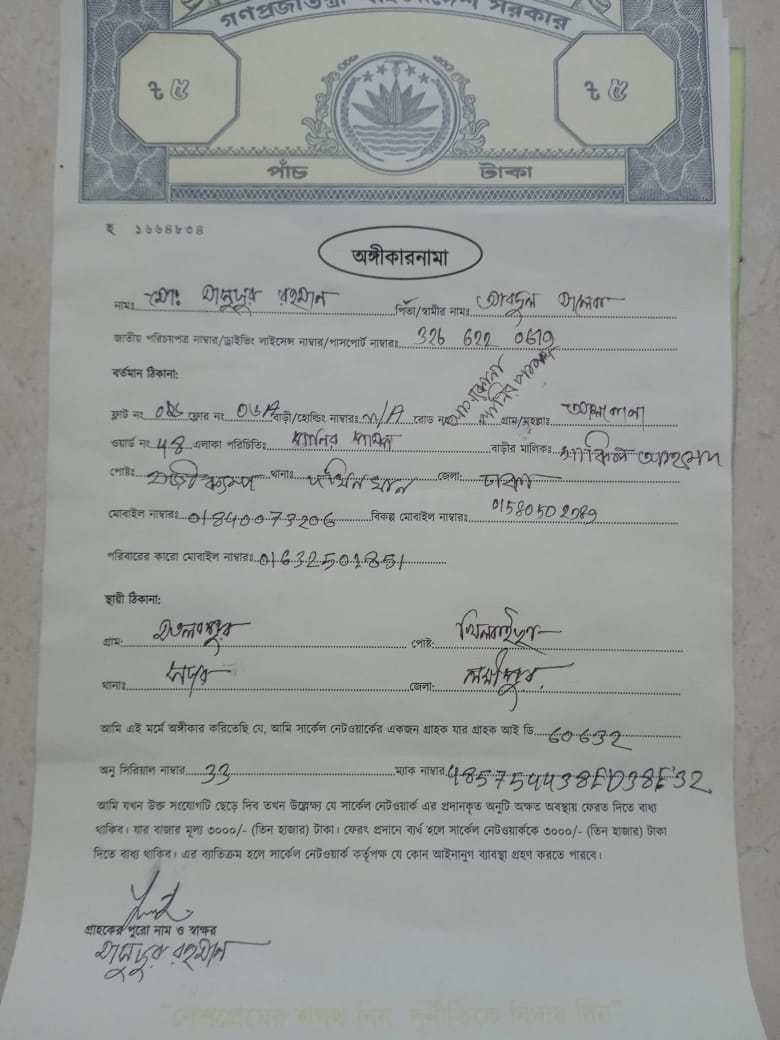 গণপ্রজাতন্ত্রী বাংলাদেশ সরকার
৳ ৫ ৳ ৫
পাঁচ টাকা
হ ১৬৬৪৮৩৪
অঙ্গীকারনামা
নামঃ মোঃ মাসুদুর রহমান পিতা/স্বামীর নামঃ আবদুল মালেক
জাতীয় পরিচয়পত্র নাম্বার/ড্রাইভিং লাইসেন্স নাম্বার/পাসপোর্ট নাম্বারঃ 326 622 0619
বর্তমান ঠিকানা:
ফ্লাট নং ফ্লোর নং 06A বাড়ী/হোল্ডিং নাম্বারঃ N/A রোড নং গ্রাম/মহল্লাঃ
ওয়ার্ড নং 48 এলাকা পরিচিতিঃ পানির পাম্প বাড়ীর মালিকঃ আহমেদ
পোষ্টঃ হাজী ক্যাম্প থানাঃ দক্ষিনখান জেলা: ঢাকা
মোবাইল নাম্বারঃ 01840073206 বিকল্প মোবাইল নাম্বারঃ 01580502989
পরিবারের কারো মোবাইল নাম্বারঃ 01632501851
স্থায়ী ঠিকানা:
গ্রাম: পোষ্ট:
থানাঃ সদর জেলা: লক্ষীপুর
আমি এই মর্মে অঙ্গীকার করিতেছি যে, আমি সার্কেল নেটওয়ার্কের একজন গ্রাহক যার গ্রাহক আই ডি 60632
অনু সিরিয়াল নাম্বার 33 ম্যাক নাম্বার 485754438ED38E32
আমি যখন উক্ত সংযোগটি ছেড়ে দিব তখন উল্লেক্ষ্য যে সার্কেল নেটওয়ার্ক এর প্রদানকৃত অনুটি অক্ষত অবস্থায় ফেরত দিতে বাধ্য
থাকিব। যার বাজার মূল্য ৩০০০/- (তিন হাজার) টাকা। ফেরৎ প্রদানে ব্যর্থ হলে সার্কেল নেটওয়ার্ককে ৩০০০/- (তিন হাজার) টাকা
দিতে বাধ্য থাকিব। এর ব্যাতিক্রম হলে সার্কেল নেটওয়ার্ক কর্তৃপক্ষ যে কোন আইনানুগ ব্যাবস্থা গ্রহণ করতে পারবে।
গ্রাহকের পুরো নাম ও স্বাক্ষর
মাসুদুর রহমান
"দেশপ্রেমের শপথ নিন, দুর্নীতিকে বিদায় দিন"